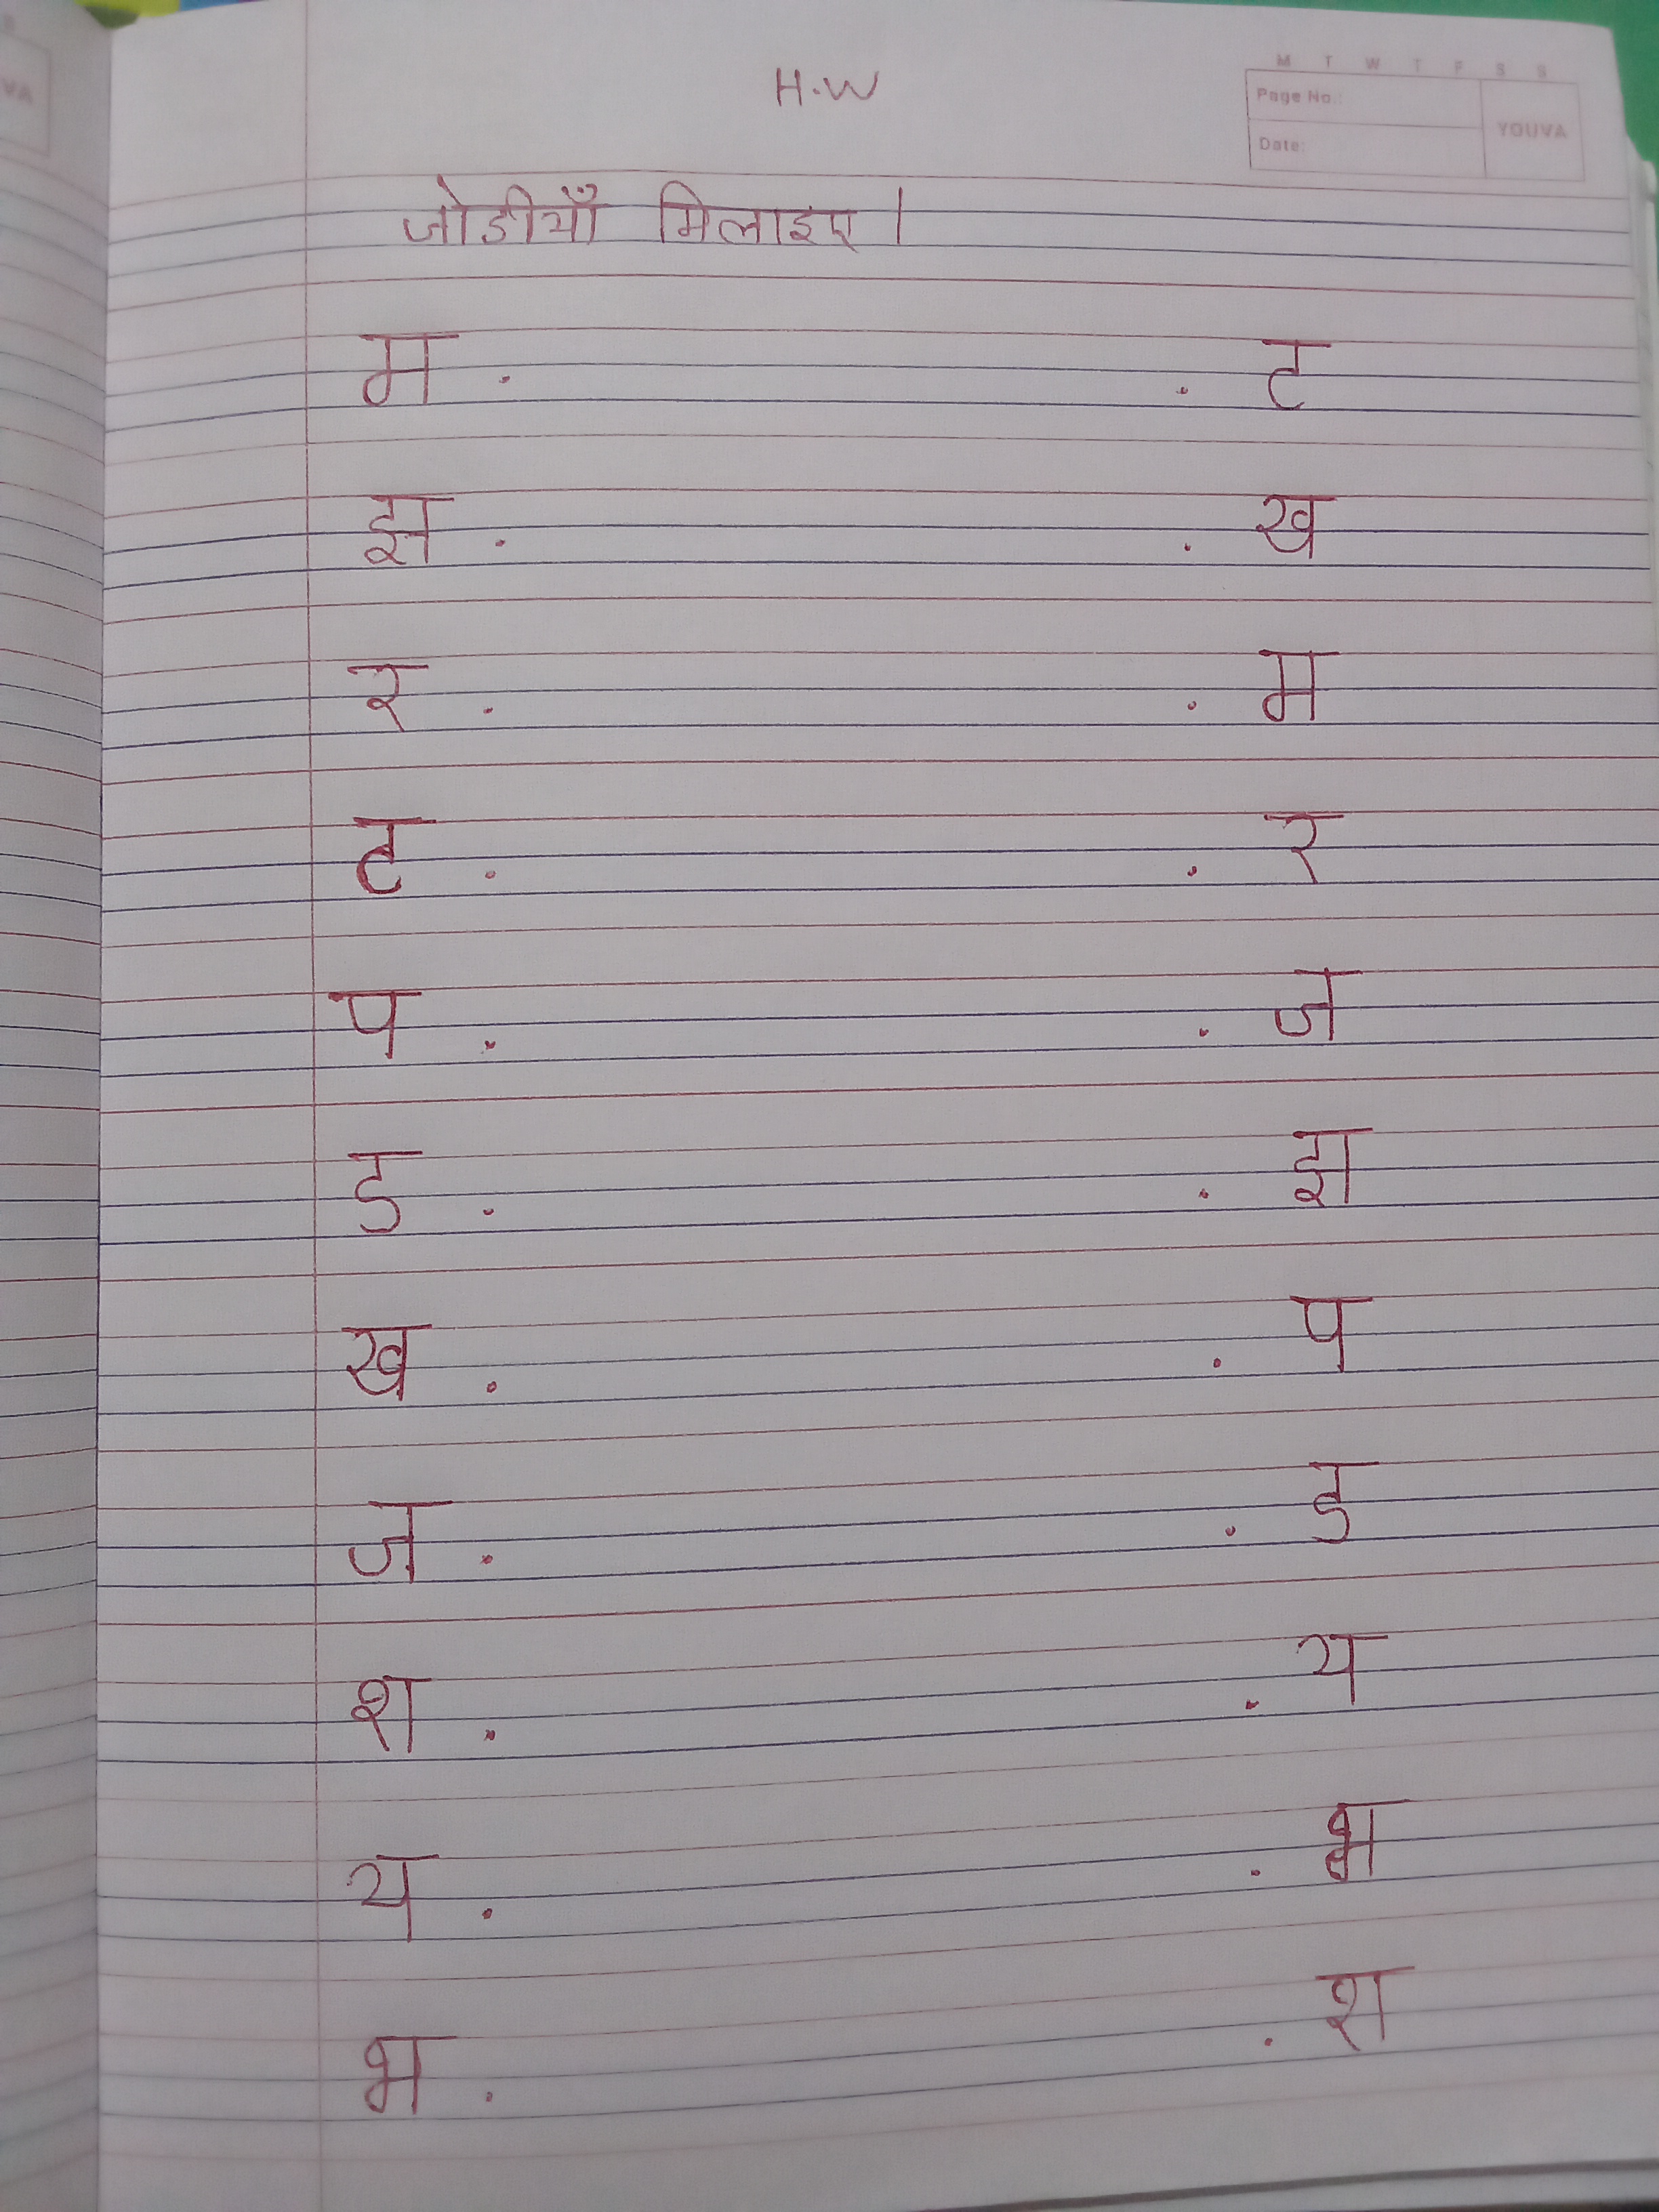 H.W
M T W T F S S
Page No.:
YOUVA
Date:
जोडीयाँ मिलाइए।
म . . ट
झ . . ख
र . . म
ट . . र
प . . ज
ड . . झ
ख . . प
ज . . ड
श . . य
य . . भ
भ . . श